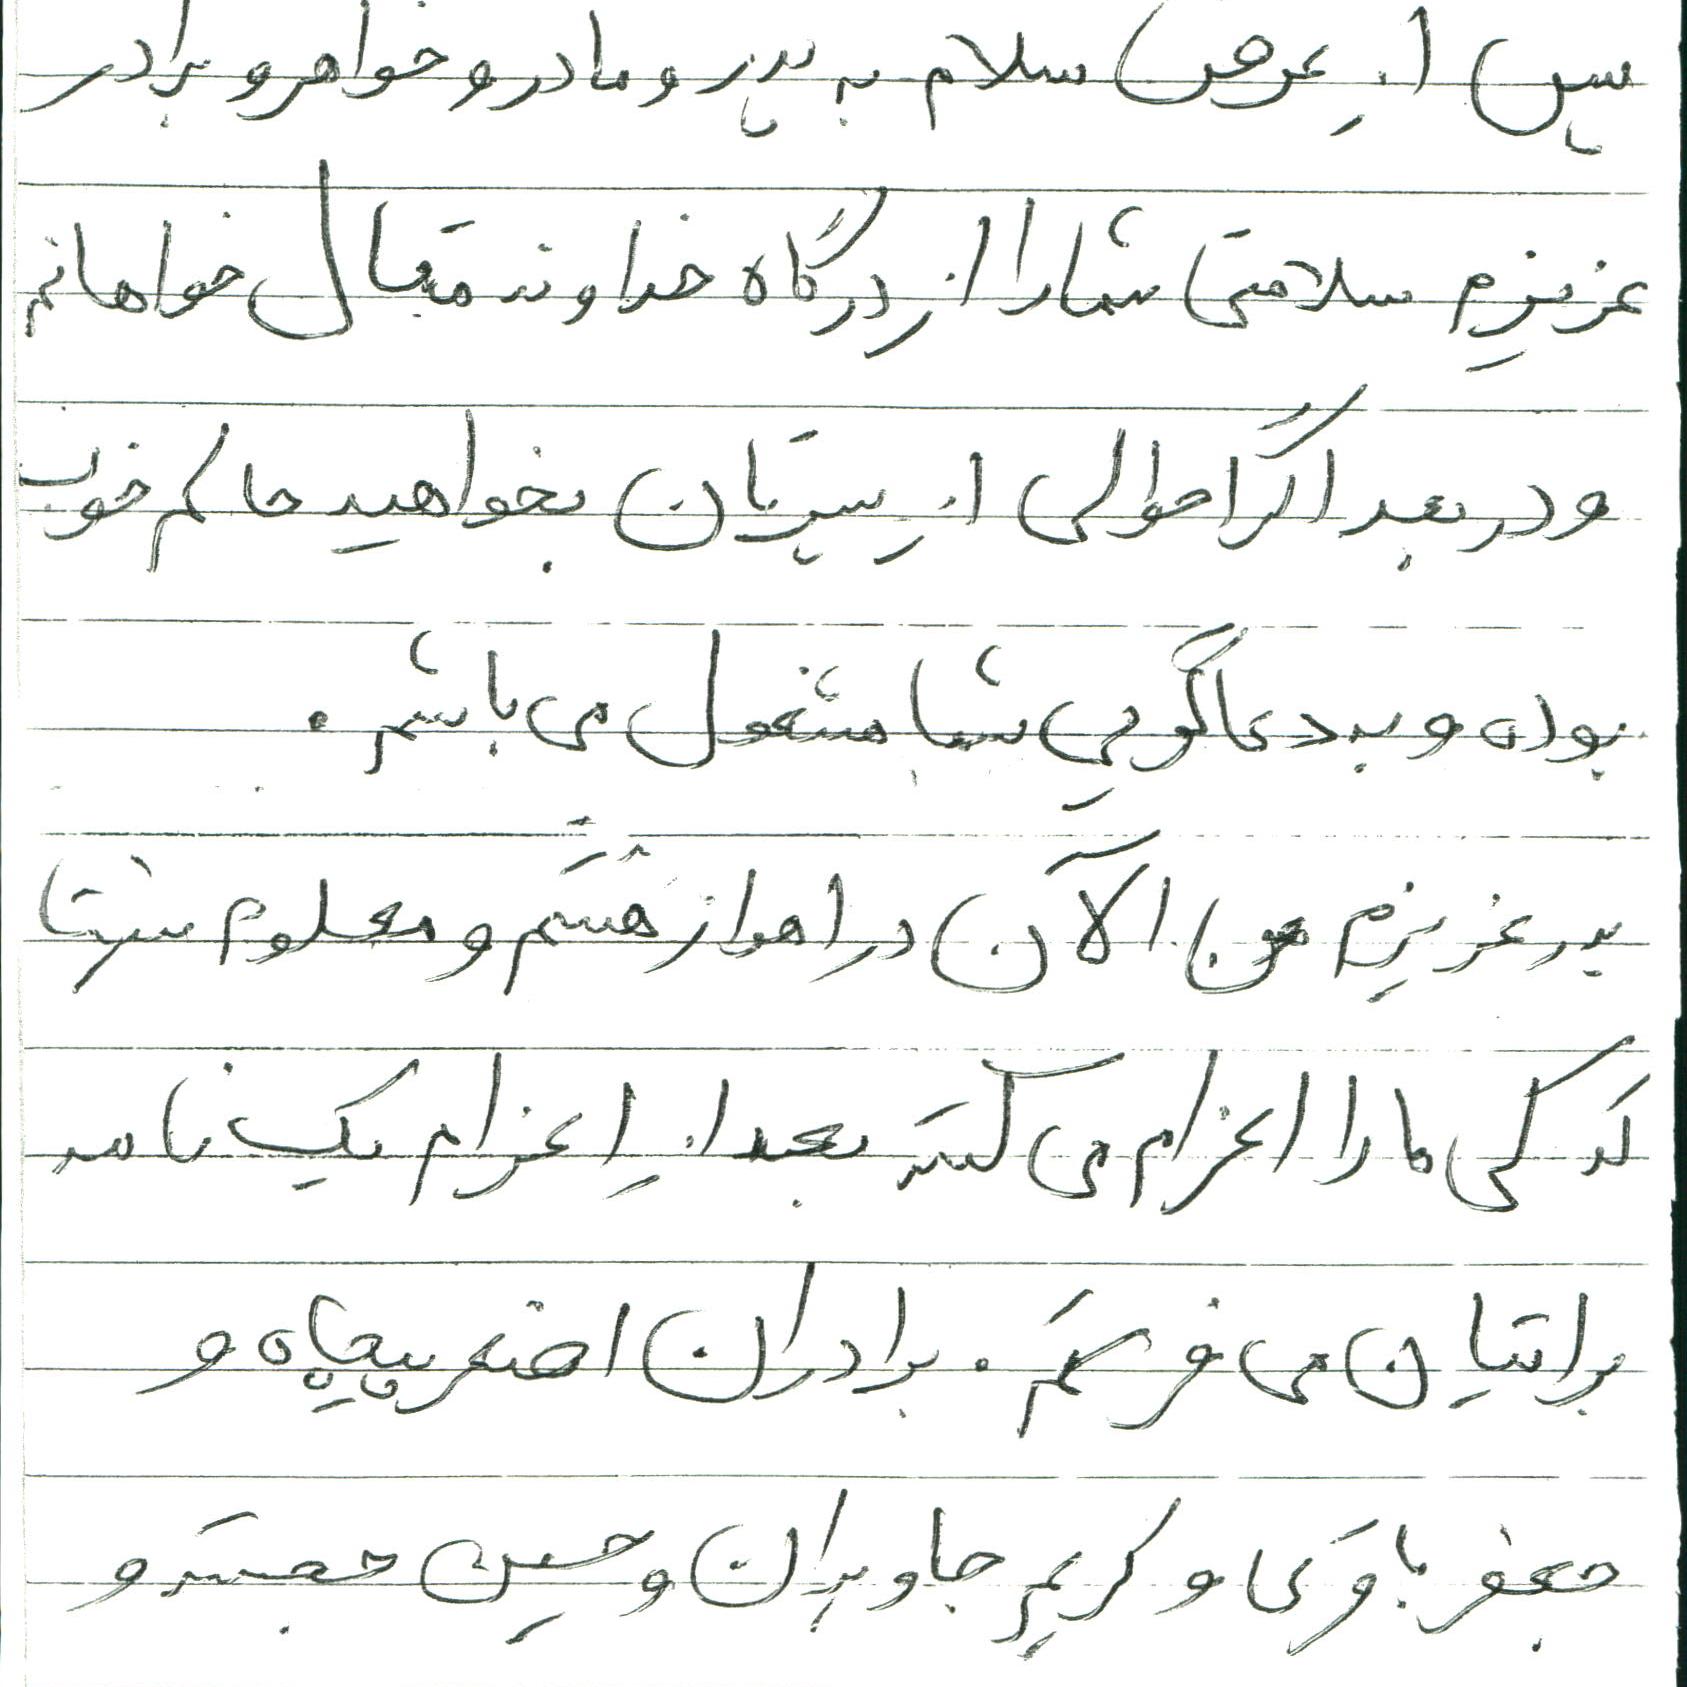 پس از عرض سلام به پدر و مادر و خواهر و برادر
عزیزم سلامتی شما را از درگاه خداوند متعال خواهانم
و در بعد اگر احوالی از پسرتان بخواهید حالم خوب
بوده و به دعاگویی شما مشغول می باشم .
پدر عزیزم من الآن در اهواز هستم و معلوم نیست
که کی ما را اعزام می کنند بعد از اعزام یک نامه
برایتان می فرستم . برادران اصغر پنجاه و
جعفر باقری و کریم جاویدان و حسین خجسته و